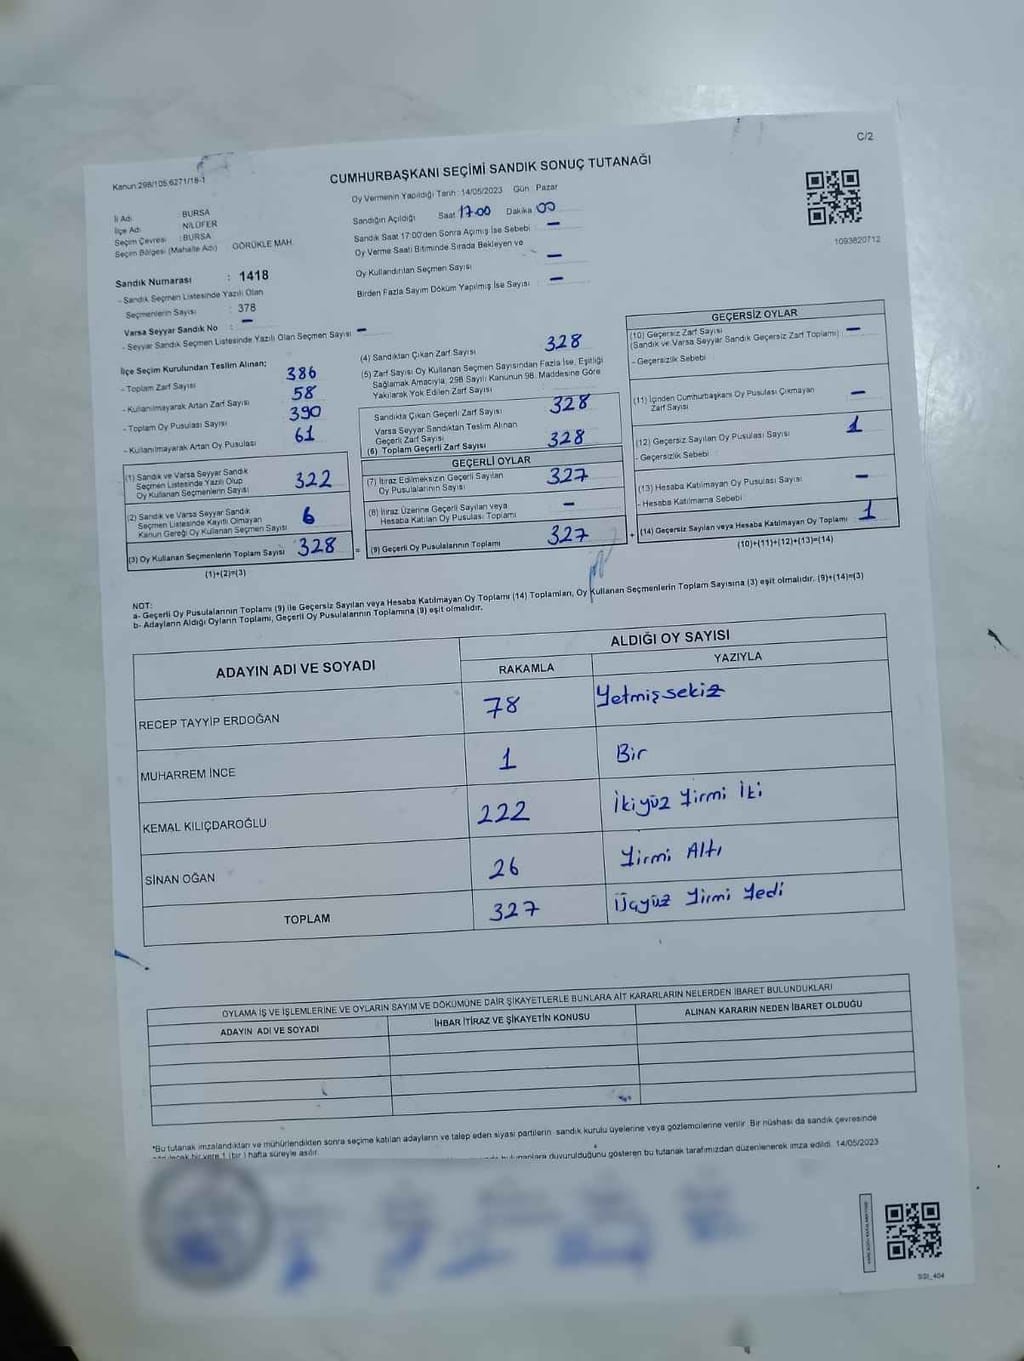 C/2
Kanun:298/105;6271/18-1
CUMHURBAŞKANI SEÇİMİ SANDIK SONUÇ TUTANAĞI
Oy Vermenin Yapıldığı Tarih: 14/05/2023 Gün: Pazar
İl Adı BURSA
İlçe Adı NİLÜFER
Seçim Çevresi : BURSA
Seçim Bölgesi (Mahalle Adı) GÖRÜKLE MAH.
Sandığın Açıldığı Saat 17.00 Dakika 00
Sandık Saat 17:00'den Sonra Açımış İse Sebebi : —
Oy Verme Saati Bitiminde Sırada Bekleyen ve
Oy Kullandırılan Seçmen Sayısı —
Birden Fazla Sayım Döküm Yapılmış İse Sayısı : —
1093820712
Sandık Numarası : 1418
- Sandık Seçmen Listesinde Yazılı Olan
Seçmenlerin Sayısı : 378
Varsa Seyyar Sandık No : —
- Seyyar Sandık Seçmen Listesinde Yazılı Olan Seçmen Sayısı —
İlçe Seçim Kurulundan Teslim Alınan;
- Toplam Zarf Sayısı 386
- Kullanılmayarak Artan Zarf Sayısı 58
- Toplam Oy Pusulası Sayısı 390
- Kullanılmayarak Artan Oy Pusulası 61
(1) Sandık ve Varsa Seyyar Sandık
Seçmen Listesinde Yazılı Olup
Oy Kullanan Seçmenlerin Sayısı 322
(2) Sandık ve Varsa Seyyar Sandık
Seçmen Listesinde Kayıtlı Olmayan
Kanun Gereği Oy Kullanan Seçmen Sayısı 6
(3) Oy Kullanan Seçmenlerin Toplam Sayısı 328
(1)+(2)=(3)
(4) Sandıktan Çıkan Zarf Sayısı 328
(5) Zarf Sayısı Oy Kullanan Seçmen Sayısından Fazla İse, Eşitliği
Sağlamak Amacıyla, 298 Sayılı Kanunun 98. Maddesine Göre
Yakılarak Yok Edilen Zarf Sayısı
Sandıkta Çıkan Geçerli Zarf Sayısı 328
Varsa Seyyar Sandıktan Teslim Alınan
Geçerli Zarf Sayısı
(6) Toplam Geçerli Zarf Sayısı 328
GEÇERLİ OYLAR
(7) İtiraz Edilmeksizin Geçerli Sayılan
Oy Pusulalarının Sayısı 327
(8) İtiraz Üzerine Geçerli Sayılan veya
Hesaba Katılan Oy Pusulası Toplamı —
= (9) Geçerli Oy Pusulalarının Toplamı 327
GEÇERSİZ OYLAR
(10) Geçersiz Zarf Sayısı
(Sandık ve Varsa Seyyar Sandık Geçersiz Zarf Toplamı) —
- Geçersizlik Sebebi
(11) İçinden Cumhurbaşkanı Oy Pusulası Çıkmayan
Zarf Sayısı —
(12) Geçersiz Sayılan Oy Pusulası Sayısı 1
- Geçersizlik Sebebi
(13) Hesaba Katılmayan Oy Pusulası Sayısı —
- Hesaba Katılmama Sebebi
+ (14) Geçersiz Sayılan veya Hesaba Katılmayan Oy Toplamı 1
(10)+(11)+(12)+(13)=(14)
NOT:
a- Geçerli Oy Pusulalarının Toplamı (9) ile Geçersiz Sayılan veya Hesaba Katılmayan Oy Toplamı (14) Toplamları, Oy Kullanan Seçmenlerin Toplam Sayısına (3) eşit olmalıdır. (9)+(14)=(3)
b- Adayların Aldığı Oyların Toplamı, Geçerli Oy Pusulalarının Toplamına (9) eşit olmalıdır.
ADAYIN ADI VE SOYADI ALDIĞI OY SAYISI
RAKAMLA YAZIYLA
RECEP TAYYİP ERDOĞAN 78 Yetmişsekiz
MUHARREM İNCE 1 Bir
KEMAL KILIÇDAROĞLU 222 İkiyüz Yirmi İki
SİNAN OĞAN 26 Yirmi Altı
TOPLAM 327 Üçyüz Yirmi Yedi
OYLAMA İŞ VE İŞLEMLERİNE VE OYLARIN SAYIM VE DÖKÜMÜNE DAİR ŞİKAYETLERLE BUNLARA AİT KARARLARIN NELERDEN İBARET BULUNDUKLARI
ADAYIN ADI VE SOYADI İHBAR İTİRAZ VE ŞİKAYETİN KONUSU ALINAN KARARIN NEDEN İBARET OLDUĞU
*Bu tutanak imzalandıktan ve mühürlendikten sonra seçime katılan adayların ve talep eden siyasi partilerin sandık kurulu üyelerine veya gözlemcilerine verilir. Bir nüshası da sandık çevresinde
görülecek bir yere 1 (bir) hafta süreyle asılır.
duyurulduğunu gösteren bu tutanak tarafımızdan düzenlenerek imza edildi. 14/05/2023
SSI_404